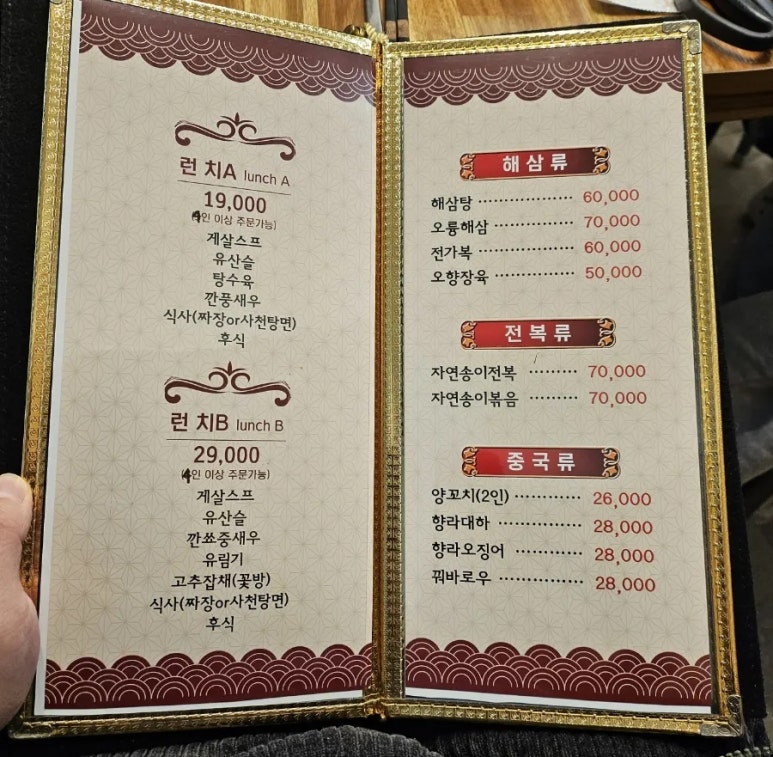 런 치A lunch A
19,000
(4인 이상 주문가능)
게살스프
유산슬
탕수육
깐풍새우
식사(짜장or사천탕면)
후식
런 치B lunch B
29,000
(4인 이상 주문가능)
게살스프
유산슬
깐쑈중새우
유림기
고추잡채(꽃방)
식사(짜장or사천탕면)
후식
해삼류
해삼탕 ·················· 60,000
오룡해삼 ··············· 70,000
전가복 ·················· 60,000
오향장육 ··············· 50,000
전복류
자연송이전복 ········· 70,000
자연송이볶음 ········· 70,000
중국류
양꼬치(2인) ············ 26,000
향라대하 ··············· 28,000
향라오징어 ············ 28,000
꿔바로우 ··············· 28,000